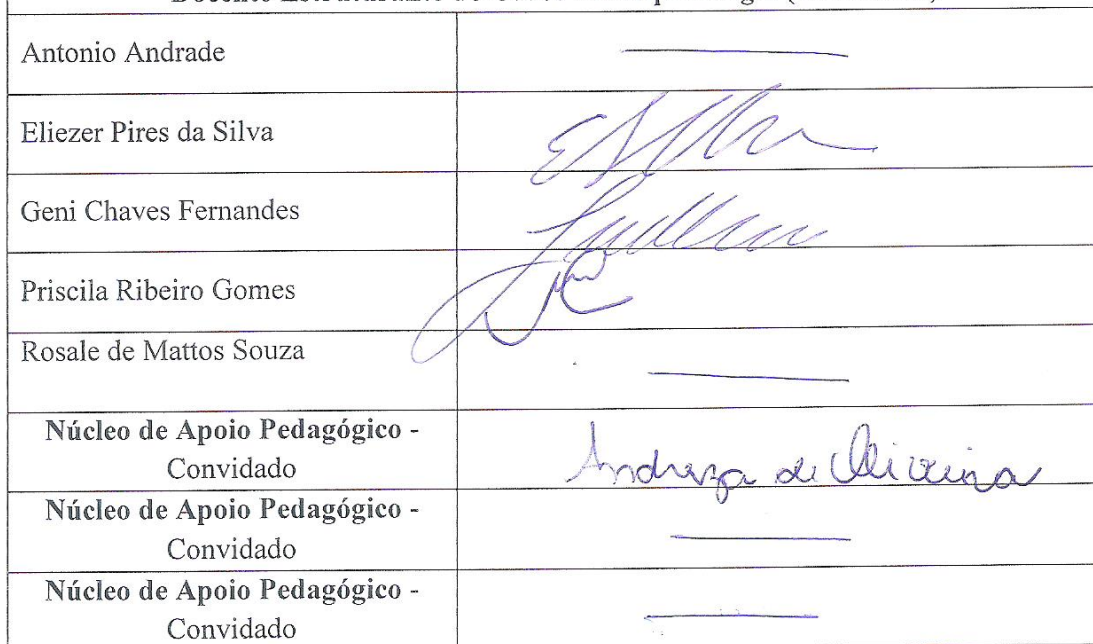 Antonio Andrade
Eliezer Pires da Silva
Geni Chaves Fernandes
Priscila Ribeiro Gomes
Rosale de Mattos Souza
Núcleo de Apoio Pedagógico -
Convidado
Andreza de Oliveira
Núcleo de Apoio Pedagógico -
Convidado
Núcleo de Apoio Pedagógico -
Convidado